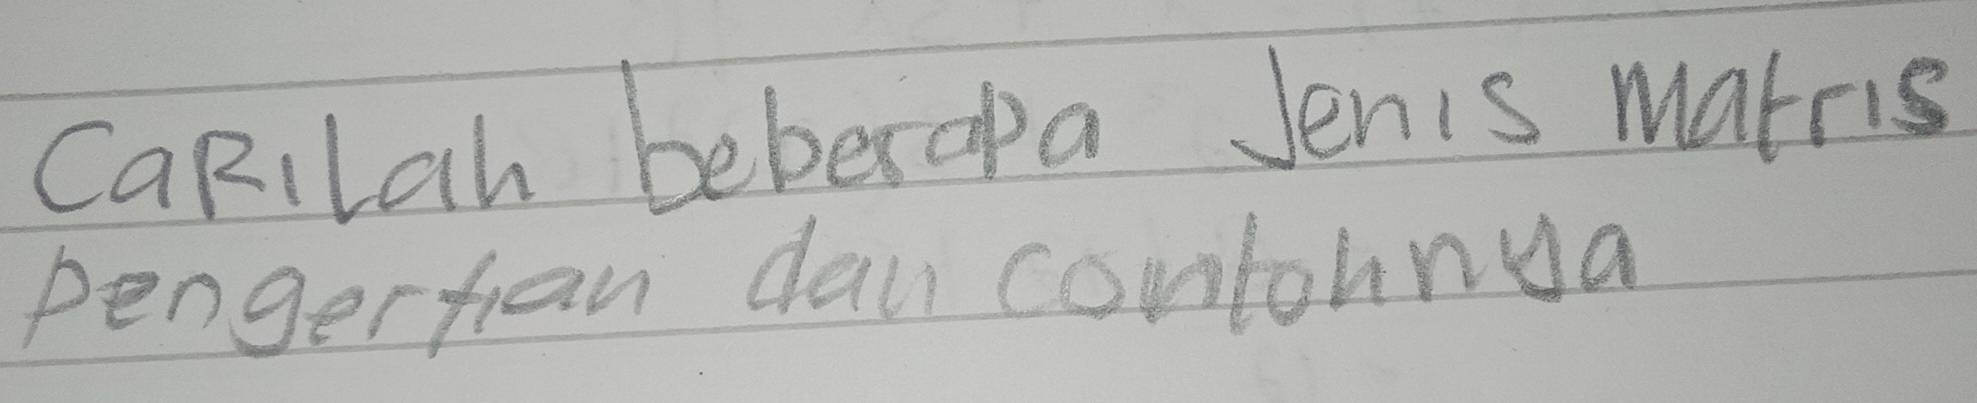 Carilah beberapa Jenis Matris
pengertian dan contohnya